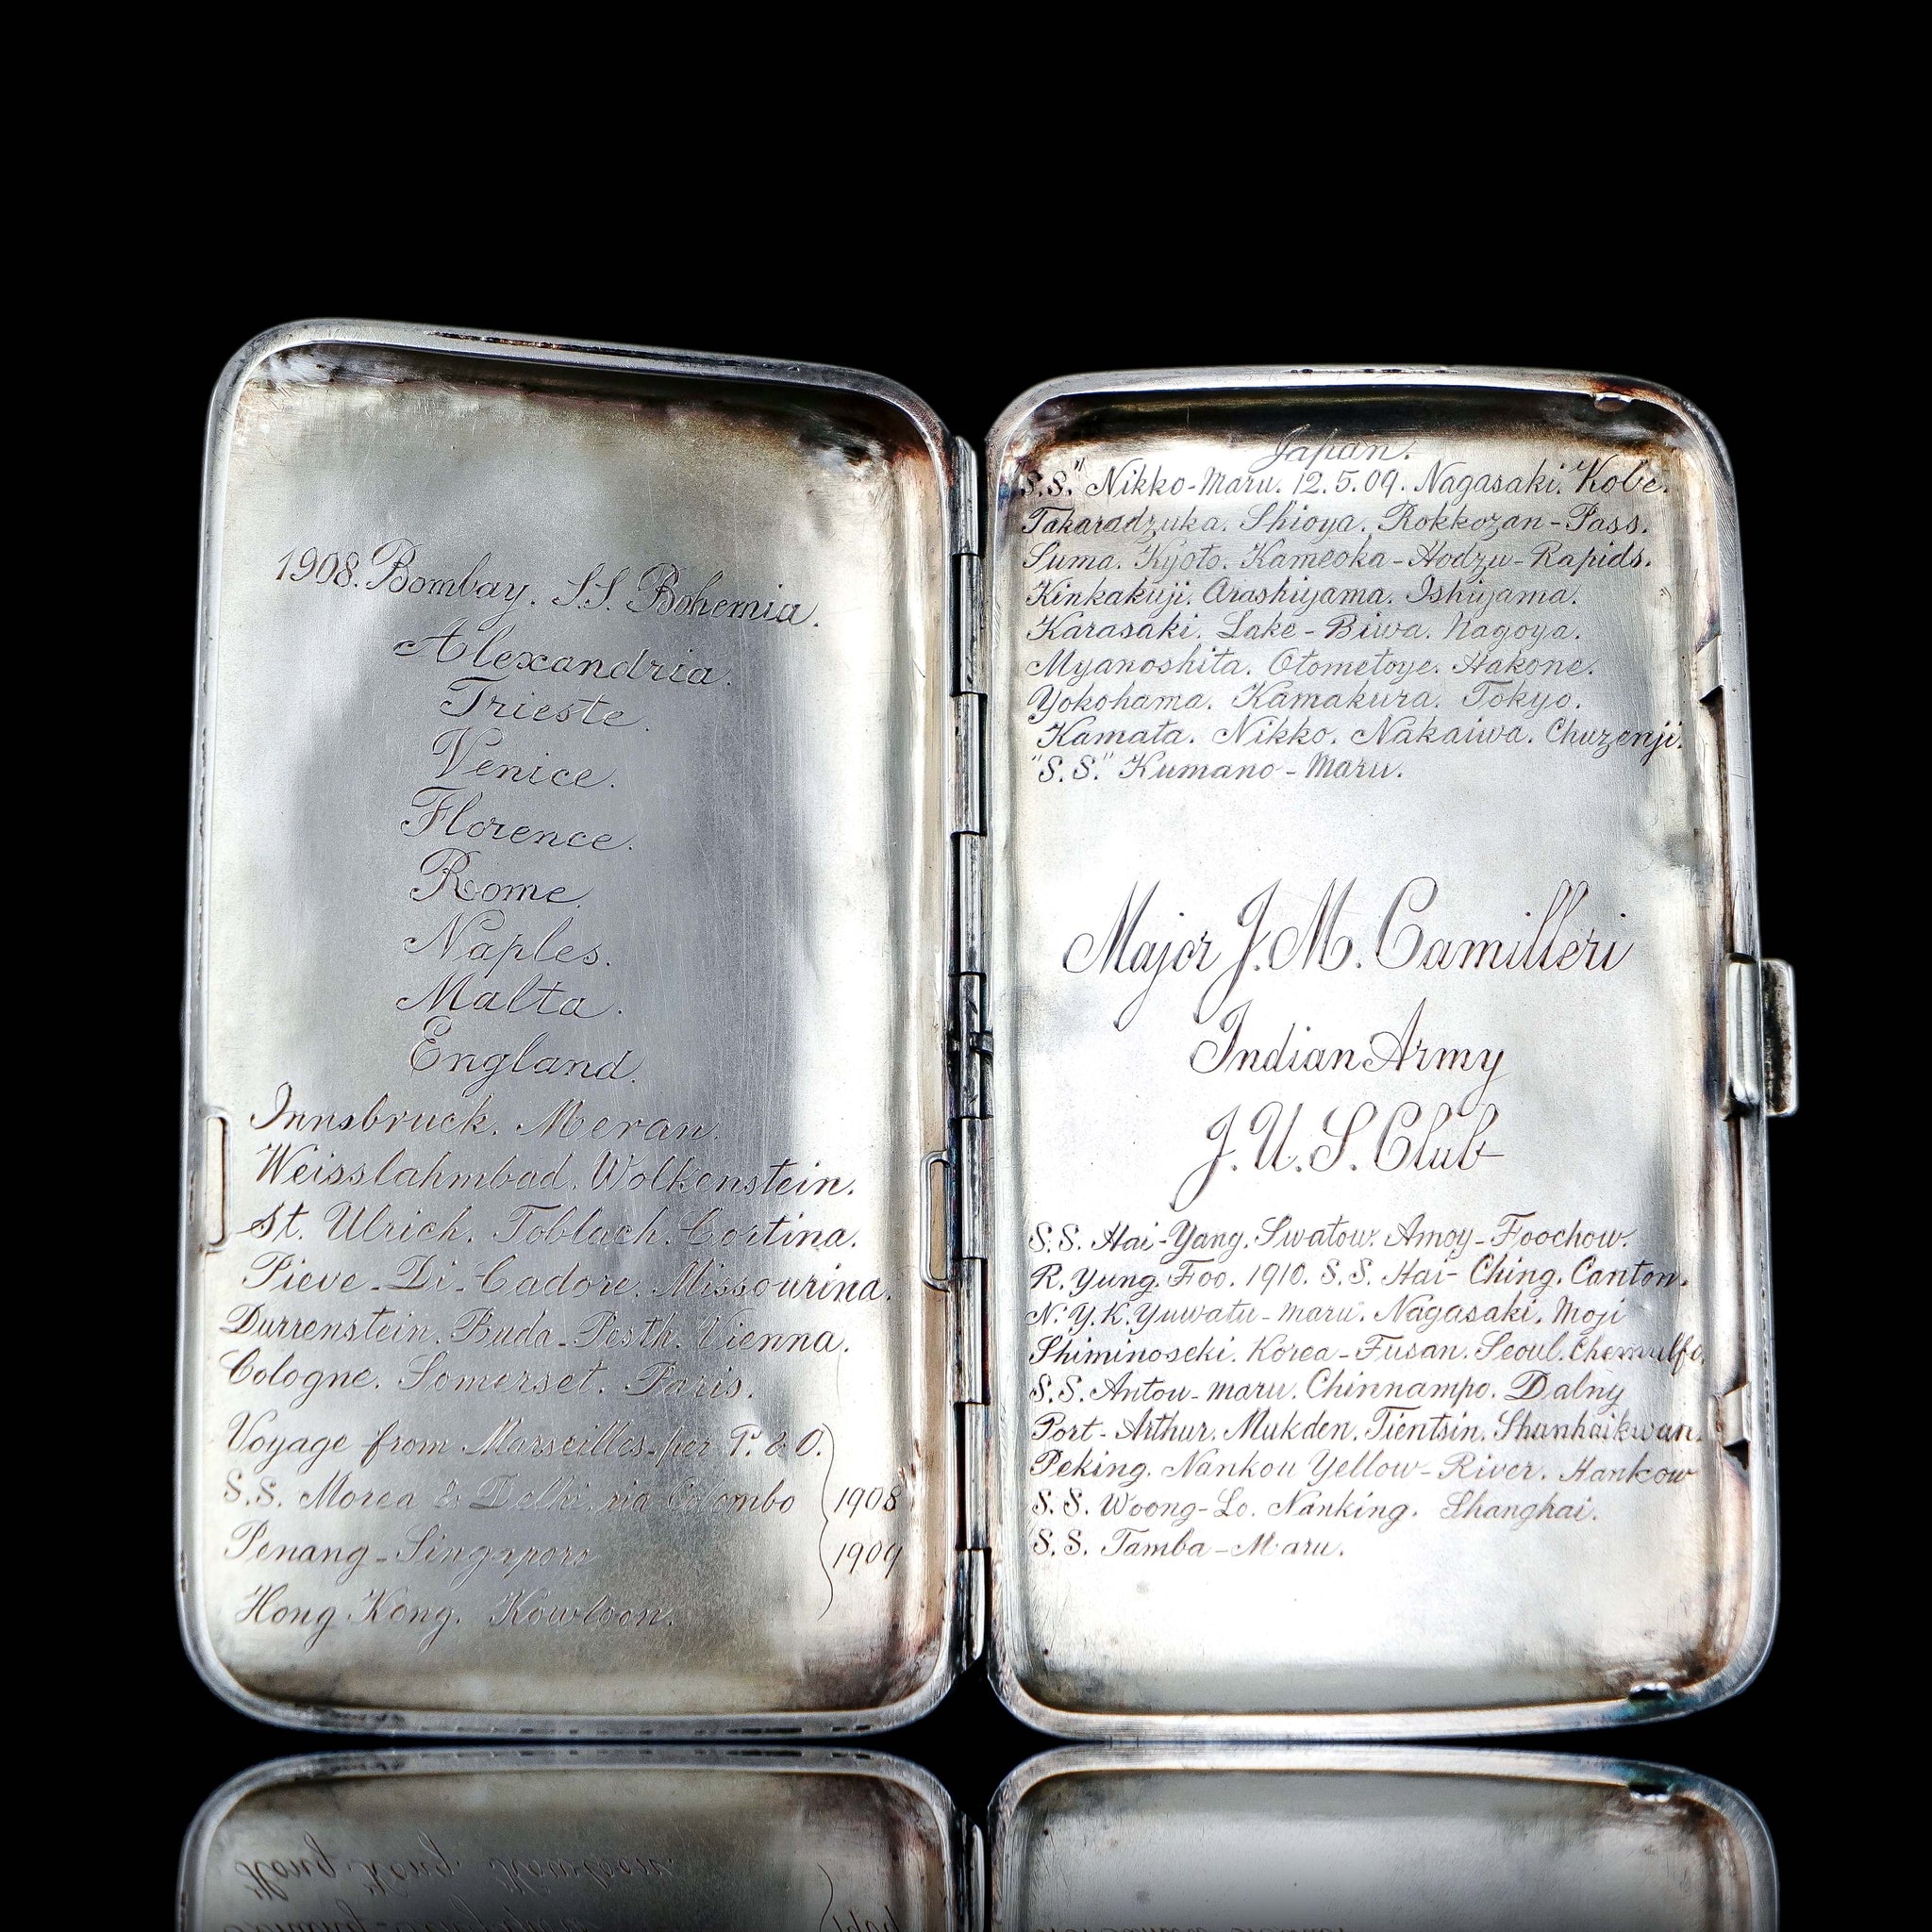 1908. Bombay. S.S. Bohemia.
Alexandria.
Trieste.
Venice.
Florence.
Rome.
Naples.
Malta.
England.
Innsbruck. Meran.
Weisslahmbad. Wolkenstein.
St. Ulrich. Toblach. Cortina.
Pieve-Di-Cadore. Missourina.
Durrenstein. Buda-Pesth. Vienna.
Cologne. Somerset. Paris.
Voyage from Marseilles-per P. & O.
S.S. Morea & Delhi. via Colombo 1908
Penang-Singapore 1909
Hong Kong. Kowloon.
Japan.
"S.S." Nikko-Maru. 12.5.09. Nagasaki. Kobe.
Takaradzuka. Shioya. Rokkozan-Pass.
Suma. Kyoto. Kameoka-Hodzu-Rapids.
Kinkakuji. Arashiyama. Ishiyama.
Karasaki. Lake-Biwa. Nagoya.
Myanoshita. Otometoye. Hakone.
Yokohama. Kamakura. Tokyo.
Kamata. Nikko. Nakaiwa. Chuzenji.
"S.S." Kumano-Maru.
Major J. M. Camilleri
Indian Army
J. U. S. Club
S.S. Hai-Yang. Swatow. Amoy-Foochow.
R. Yung. Foo. 1910. S.S. Hai-Ching. Canton.
N.Y.K. Yuwatu-maru. Nagasaki. Moji
Shiminoseki. Korea-Fusan. Seoul. Chemulfo.
S.S. Antou-maru. Chinnampo. Dalny
Port-Arthur. Mukden. Tientsin. Shanhaikwan.
Peking. Nankou Yellow-River. Hankow
S.S. Woong-Lo. Nanking. Shanghai.
S.S. Tamba-Maru.